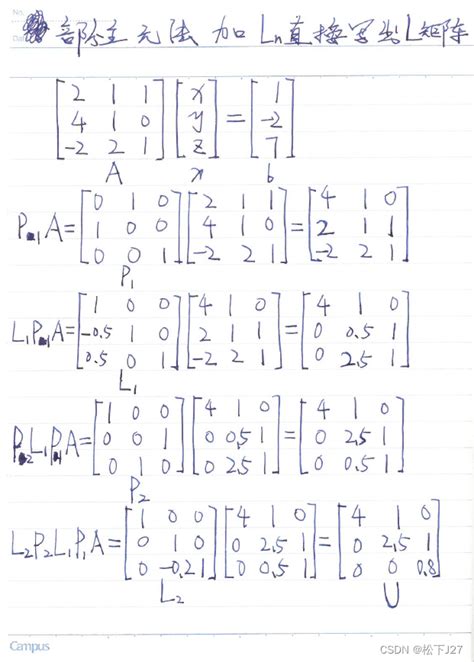 No.
Date
部际主元法 加 Ln直接写出L矩阵
[2 1 1; 4 1 0; -2 2 1] [x; y; z] = [1; -2; 7]
A x b
P1A = [0 1 0; 1 0 0; 0 0 1] [2 1 1; 4 1 0; -2 2 1] = [4 1 0; 2 1 1; -2 2 1]
P1
L1P1A = [1 0 0; -0.5 1 0; 0.5 0 1] [4 1 0; 2 1 1; -2 2 1] = [4 1 0; 0 0.5 1; 0 2.5 1]
L1
P2L1P1A = [1 0 0; 0 0 1; 0 1 0] [4 1 0; 0 0.5 1; 0 2.5 1] = [4 1 0; 0 2.5 1; 0 0.5 1]
P2
L2P2L1P1A = [1 0 0; 0 1 0; 0 -0.2 1] [4 1 0; 0 2.5 1; 0 0.5 1] = [4 1 0; 0 2.5 1; 0 0 0.8]
L2 U
Campus
CSDN @松下J27